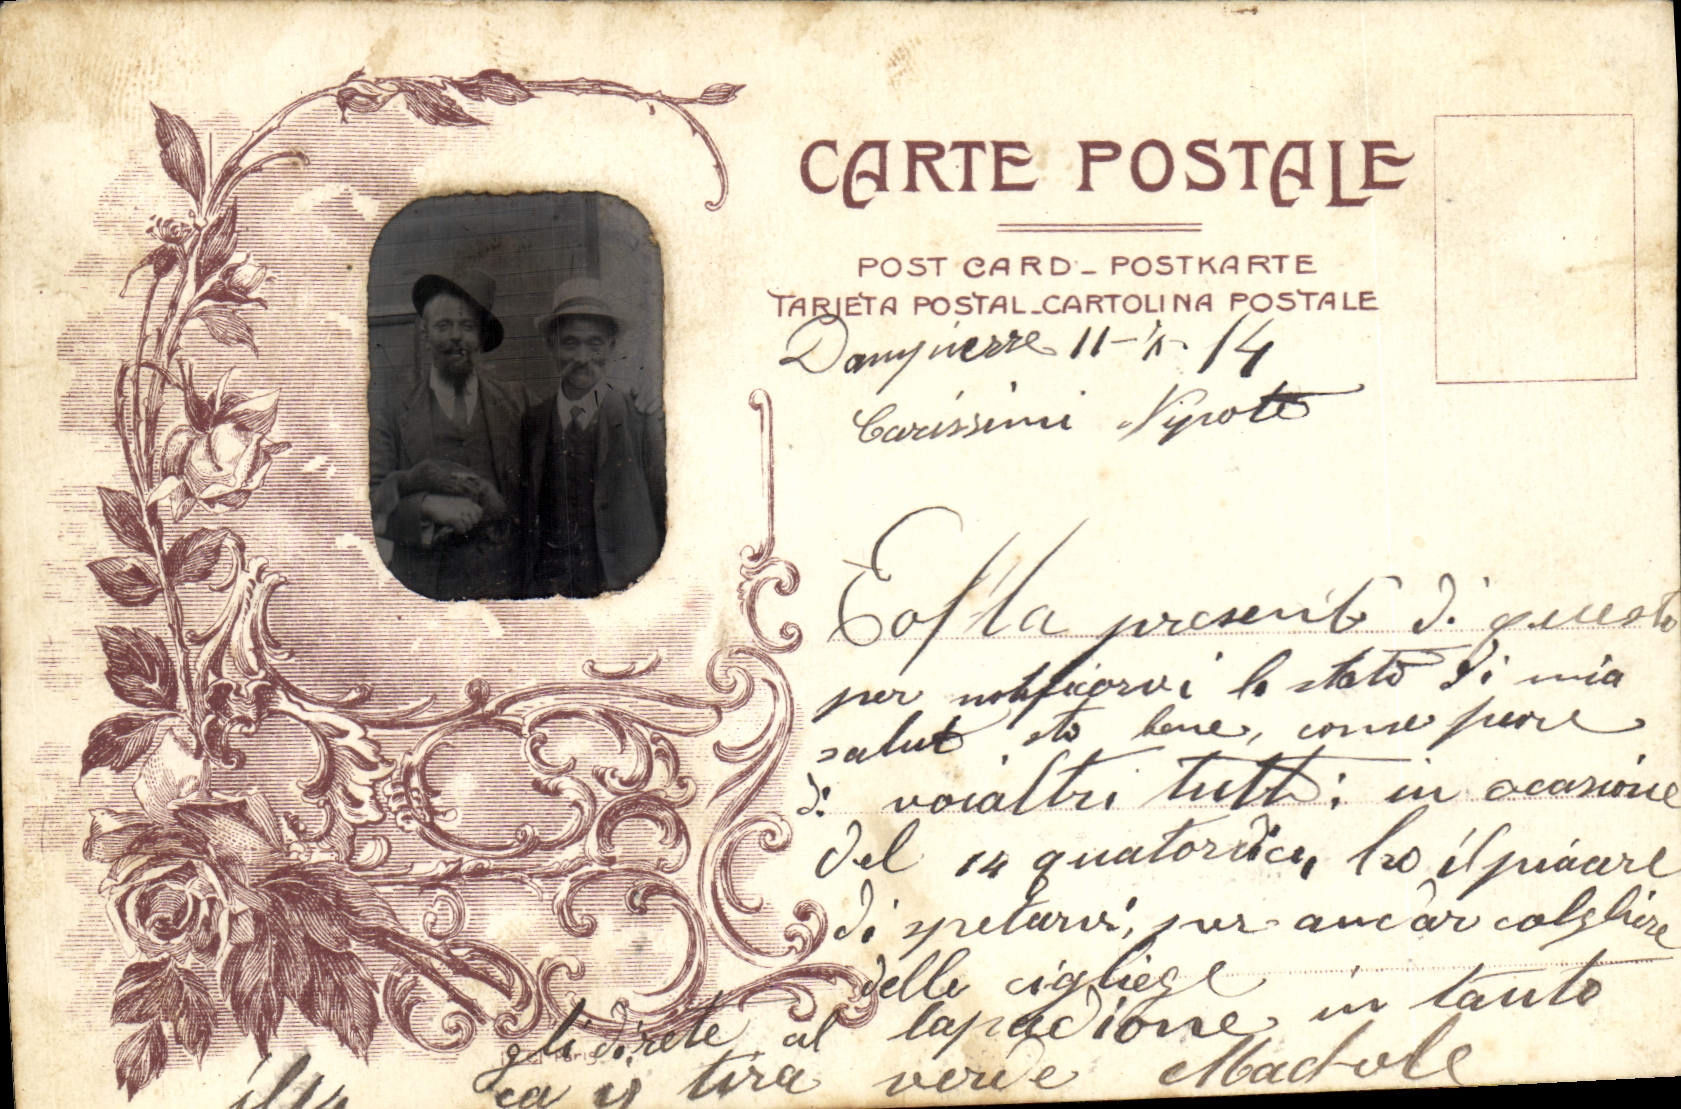 CARTE POSTALE
POST CARD - POSTKARTE
TARJETA POSTAL - CARTOLINA POSTALE
Dampierre 11-7- 14
Carissimi Nipote
Colla presente di questo
per notificarvi lo stato di mia
salute sto bene, come spero
di voialtri tutti: in ocasione
del 14 quatordici, ho il piacere
di spetarvi, per andar colgliere
delle cigliege in tanto
gli direte al
il 14 ca vi tira verde